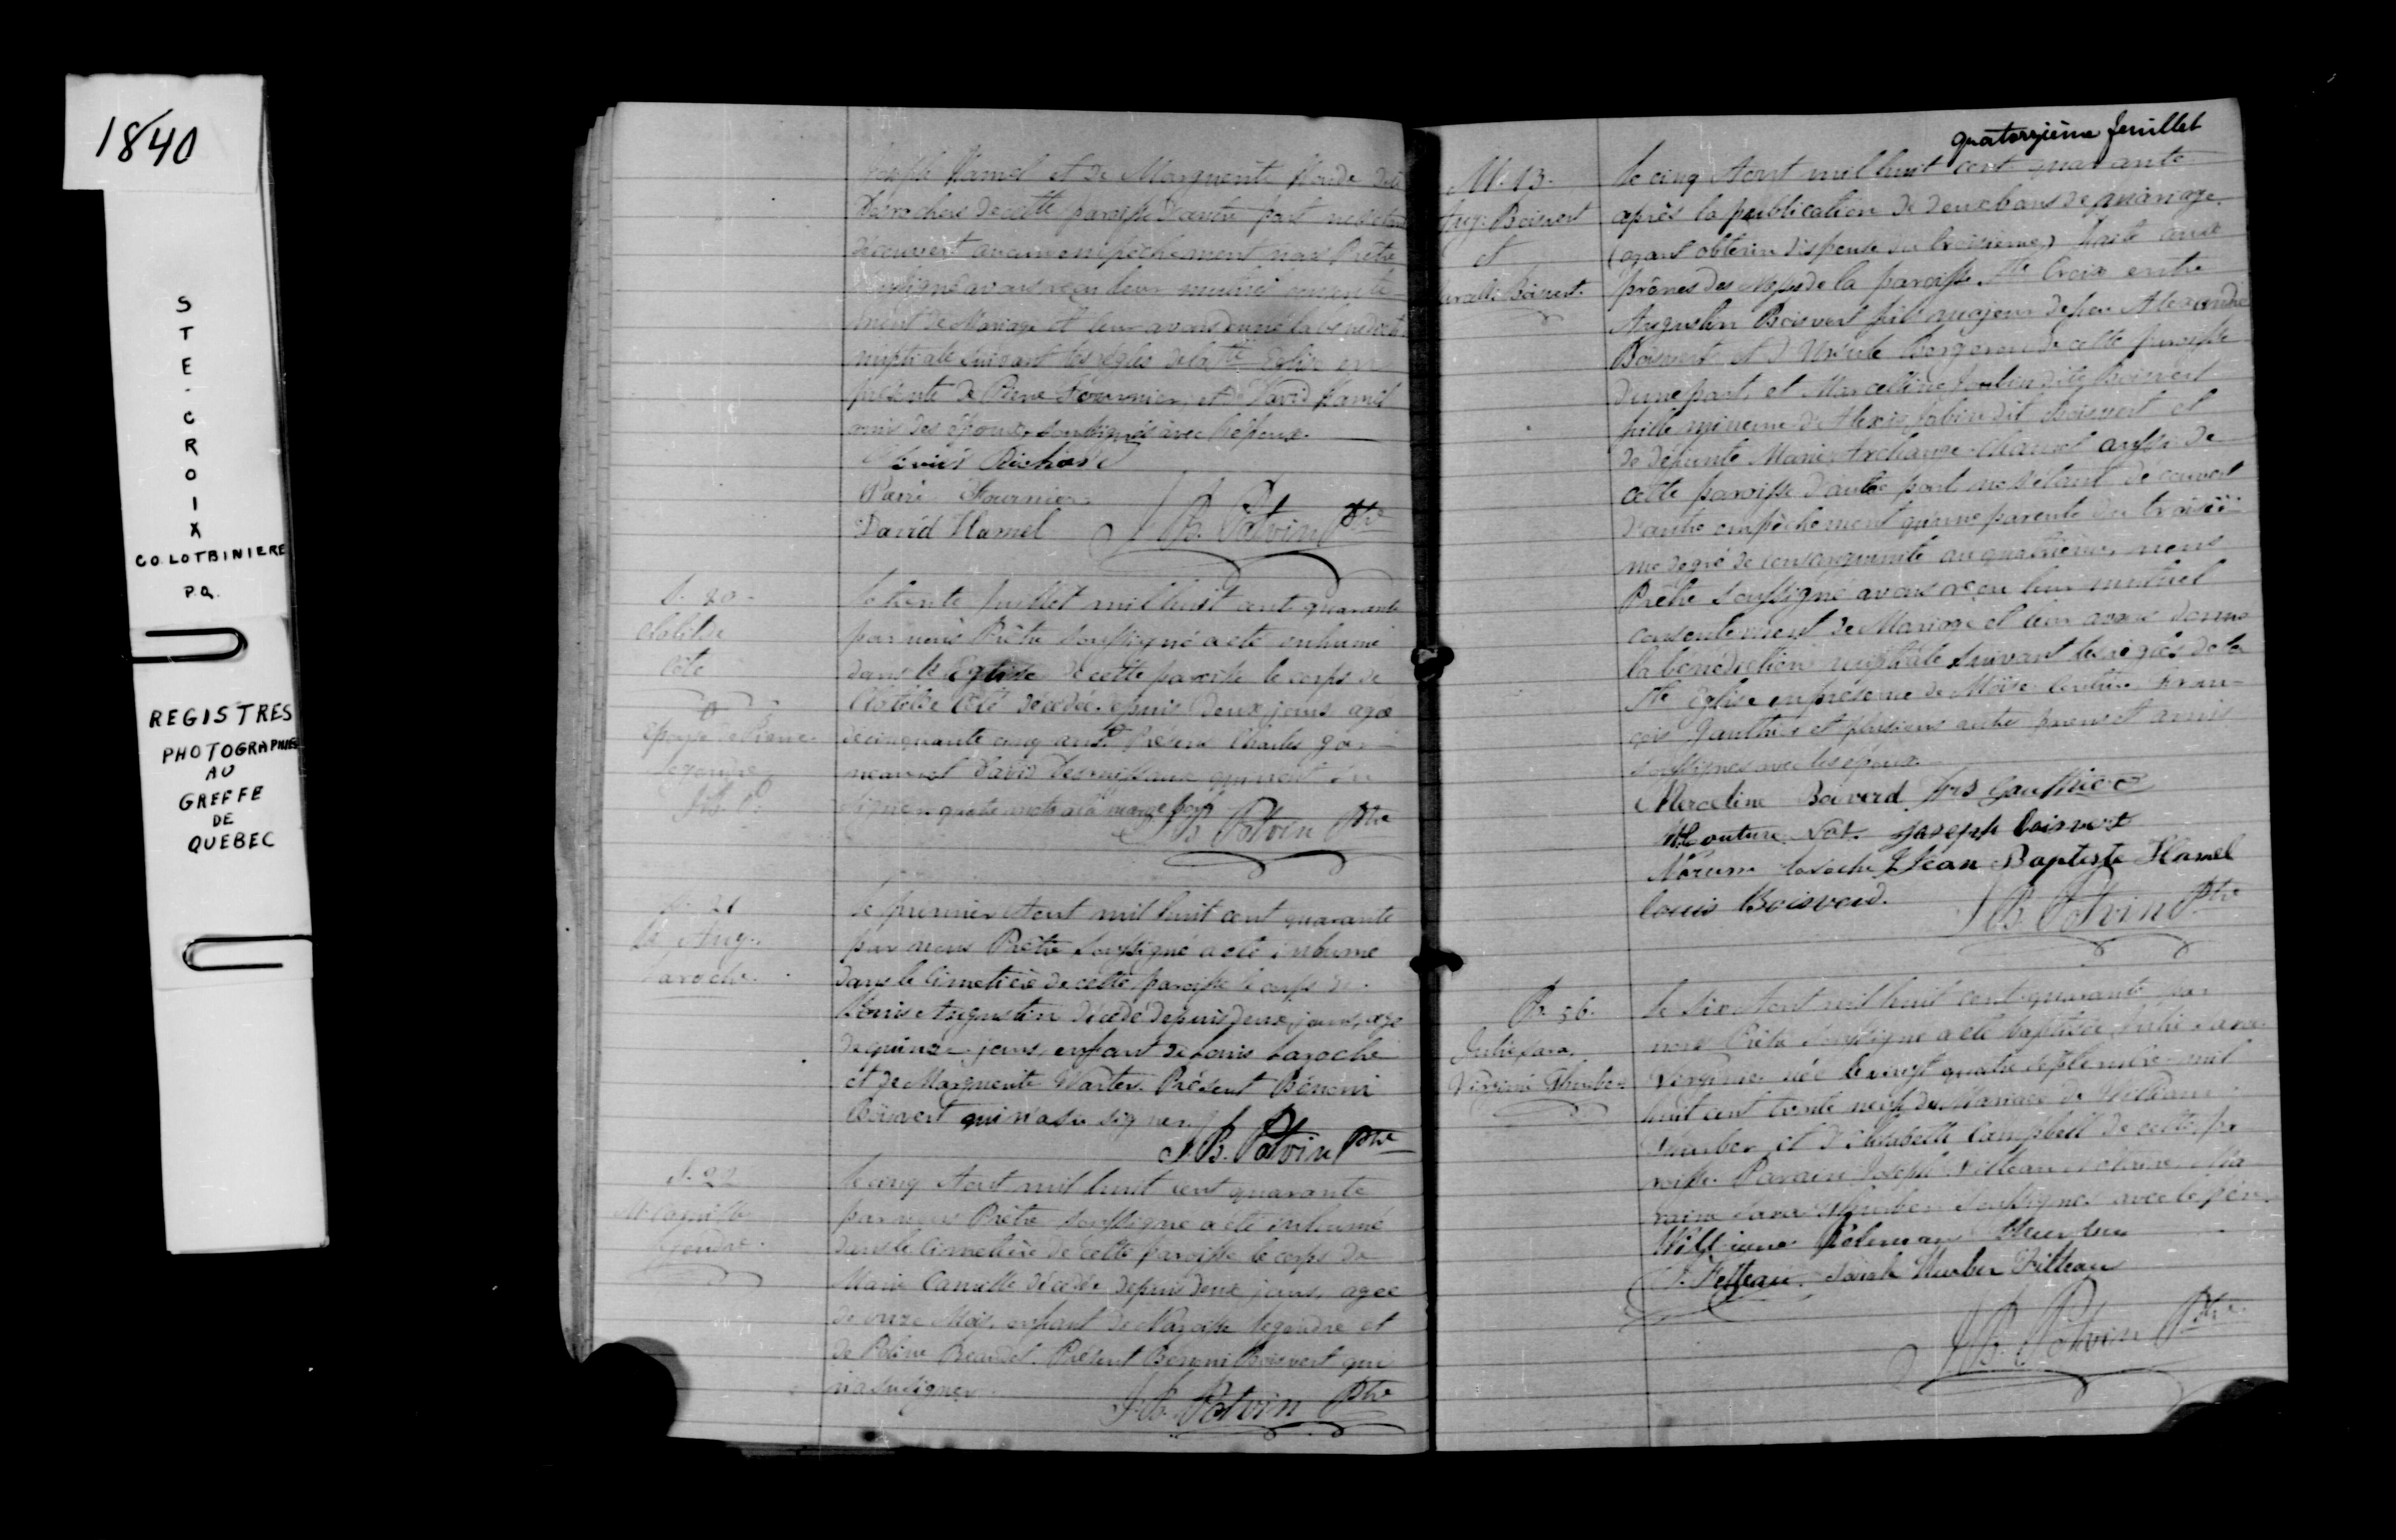 1840
STE-CROIX
CO. LOTBINIERE
P.Q.
REGISTRES
PHOTOGRAPHIES
AU
GREFFE
DE
QUEBEC
Joseph Hamel et de Marguerite Houde dite
Desrochers de cette paroisse d'autre part ne s'étant
découvert aucun empêchement nous Prêtre
soussigné avons reçu leur mutuel consente-
ment de Mariage et leur avons donné la bénédict.
nuptiale suivant les règles de la Ste Eglise en
présence de Pierre Fournier, et de David Hamel
amis des époux, soussignés avec l'époux.
Louis Richard
Pierre Fournier
David Hamel J B. Potvin Ptre
S. 20.
Clotilde
Côté
épouse de Pierre
Legendre
J.B. P.
Le trente Juillet mil huit cent quarante
par nous Prêtre soussigné a été inhumé
dans l'Eglise de cette paroisse le corps de
Clotilde Côté décédée depuis deux jours agée
de cinquante cinq ans. Présens Charles Gar-
neau et David Desruisseaux qui n'ont su
signer. quatre mots à la marge bons
J.B. Potvin Ptre
S. 21
Ls Aug.
Laroche.
Le premier Aout mil huit cent quarante
par nous Prêtre soussigné a été inhumé
dans le Cimetière de cette paroisse le corps de
Louis Augustin décédé depuis deux jours, agé
de quinze jours, enfant de Louis Laroche
et de Marguerite Warten. Présent Bénoni
Boisvert qui n'a su signer.
J.B. Potvin Ptre
S. 22
M. Camille
Legendre.
Le cinq Aout mil huit cent quarante
par nous Prêtre soussigné a été inhumé
dans le Cimetière de cette paroisse le corps de
Marie Camille décédée depuis deux jours, agée
de onze Mois, enfant de Narcisse Legendre et
de Poline Beaudet. Présent Bénoni Boisvert qui
n'a su signer.
J.B. Potvin Ptre
quatorzième feuillet
M. 13.
Aug. Boisvert
et
Marcelli. Boisvert.
Le cinq Aout mil huit cent quarante
après la publication de deux bans de mariage.
(ayant obtenu dispense du troisième) faite aux
prônes des Messes de la paroisse Ste Croix entre
Augustin Boisvert fils majeur de feu Alexandre
Boisvert et d'Ursule Bergeron de cette paroisse
d'une part, et Marcelline Jobin dite Boisvert
fille mineure d'Alexis Jobin dit Boisvert et
de défunte Marie Archange Hamel aussi de
cette paroisse d'autre part, ne s'étant découvert
d'autre empêchement qu'une parenté du troisiè-
me degré de consanguinité au quatrième, nous
Prêtre soussigné avons reçu leur mutuel
consentement de Mariage et leur avons donné
la bénédiction nuptiale suivant les règles de la
Ste Eglise en présence de Moïse Couture, Fran-
çois Gauthier et plusieurs autres parens et amis
soussignés avec les époux.
Merceline Boiverd frs Gauthier
M. Couture. Not. Joseph boisvert
Laroche Jean Baptiste Hamel
louis Boisverd.
J B. Potvin Ptre
B. 56.
Julie Sara
Virginie Thurber
Le six Aout mil huit cent quarante par
nous Prêtre soussigné a été baptisée Julie Sara
Virginie née le vingt quatre septembre mil
huit cent trente neuf du Mariage de William
Thurber et d'Elisabeth Campbell de cette pa
roisse. Parain Joseph Filteau Notaire. Ma
raine Sara Thurber soussignés avec le père.
William Thurber
J. Filteau. Sarah Thurber Filteau
J B. Potvin Ptre.